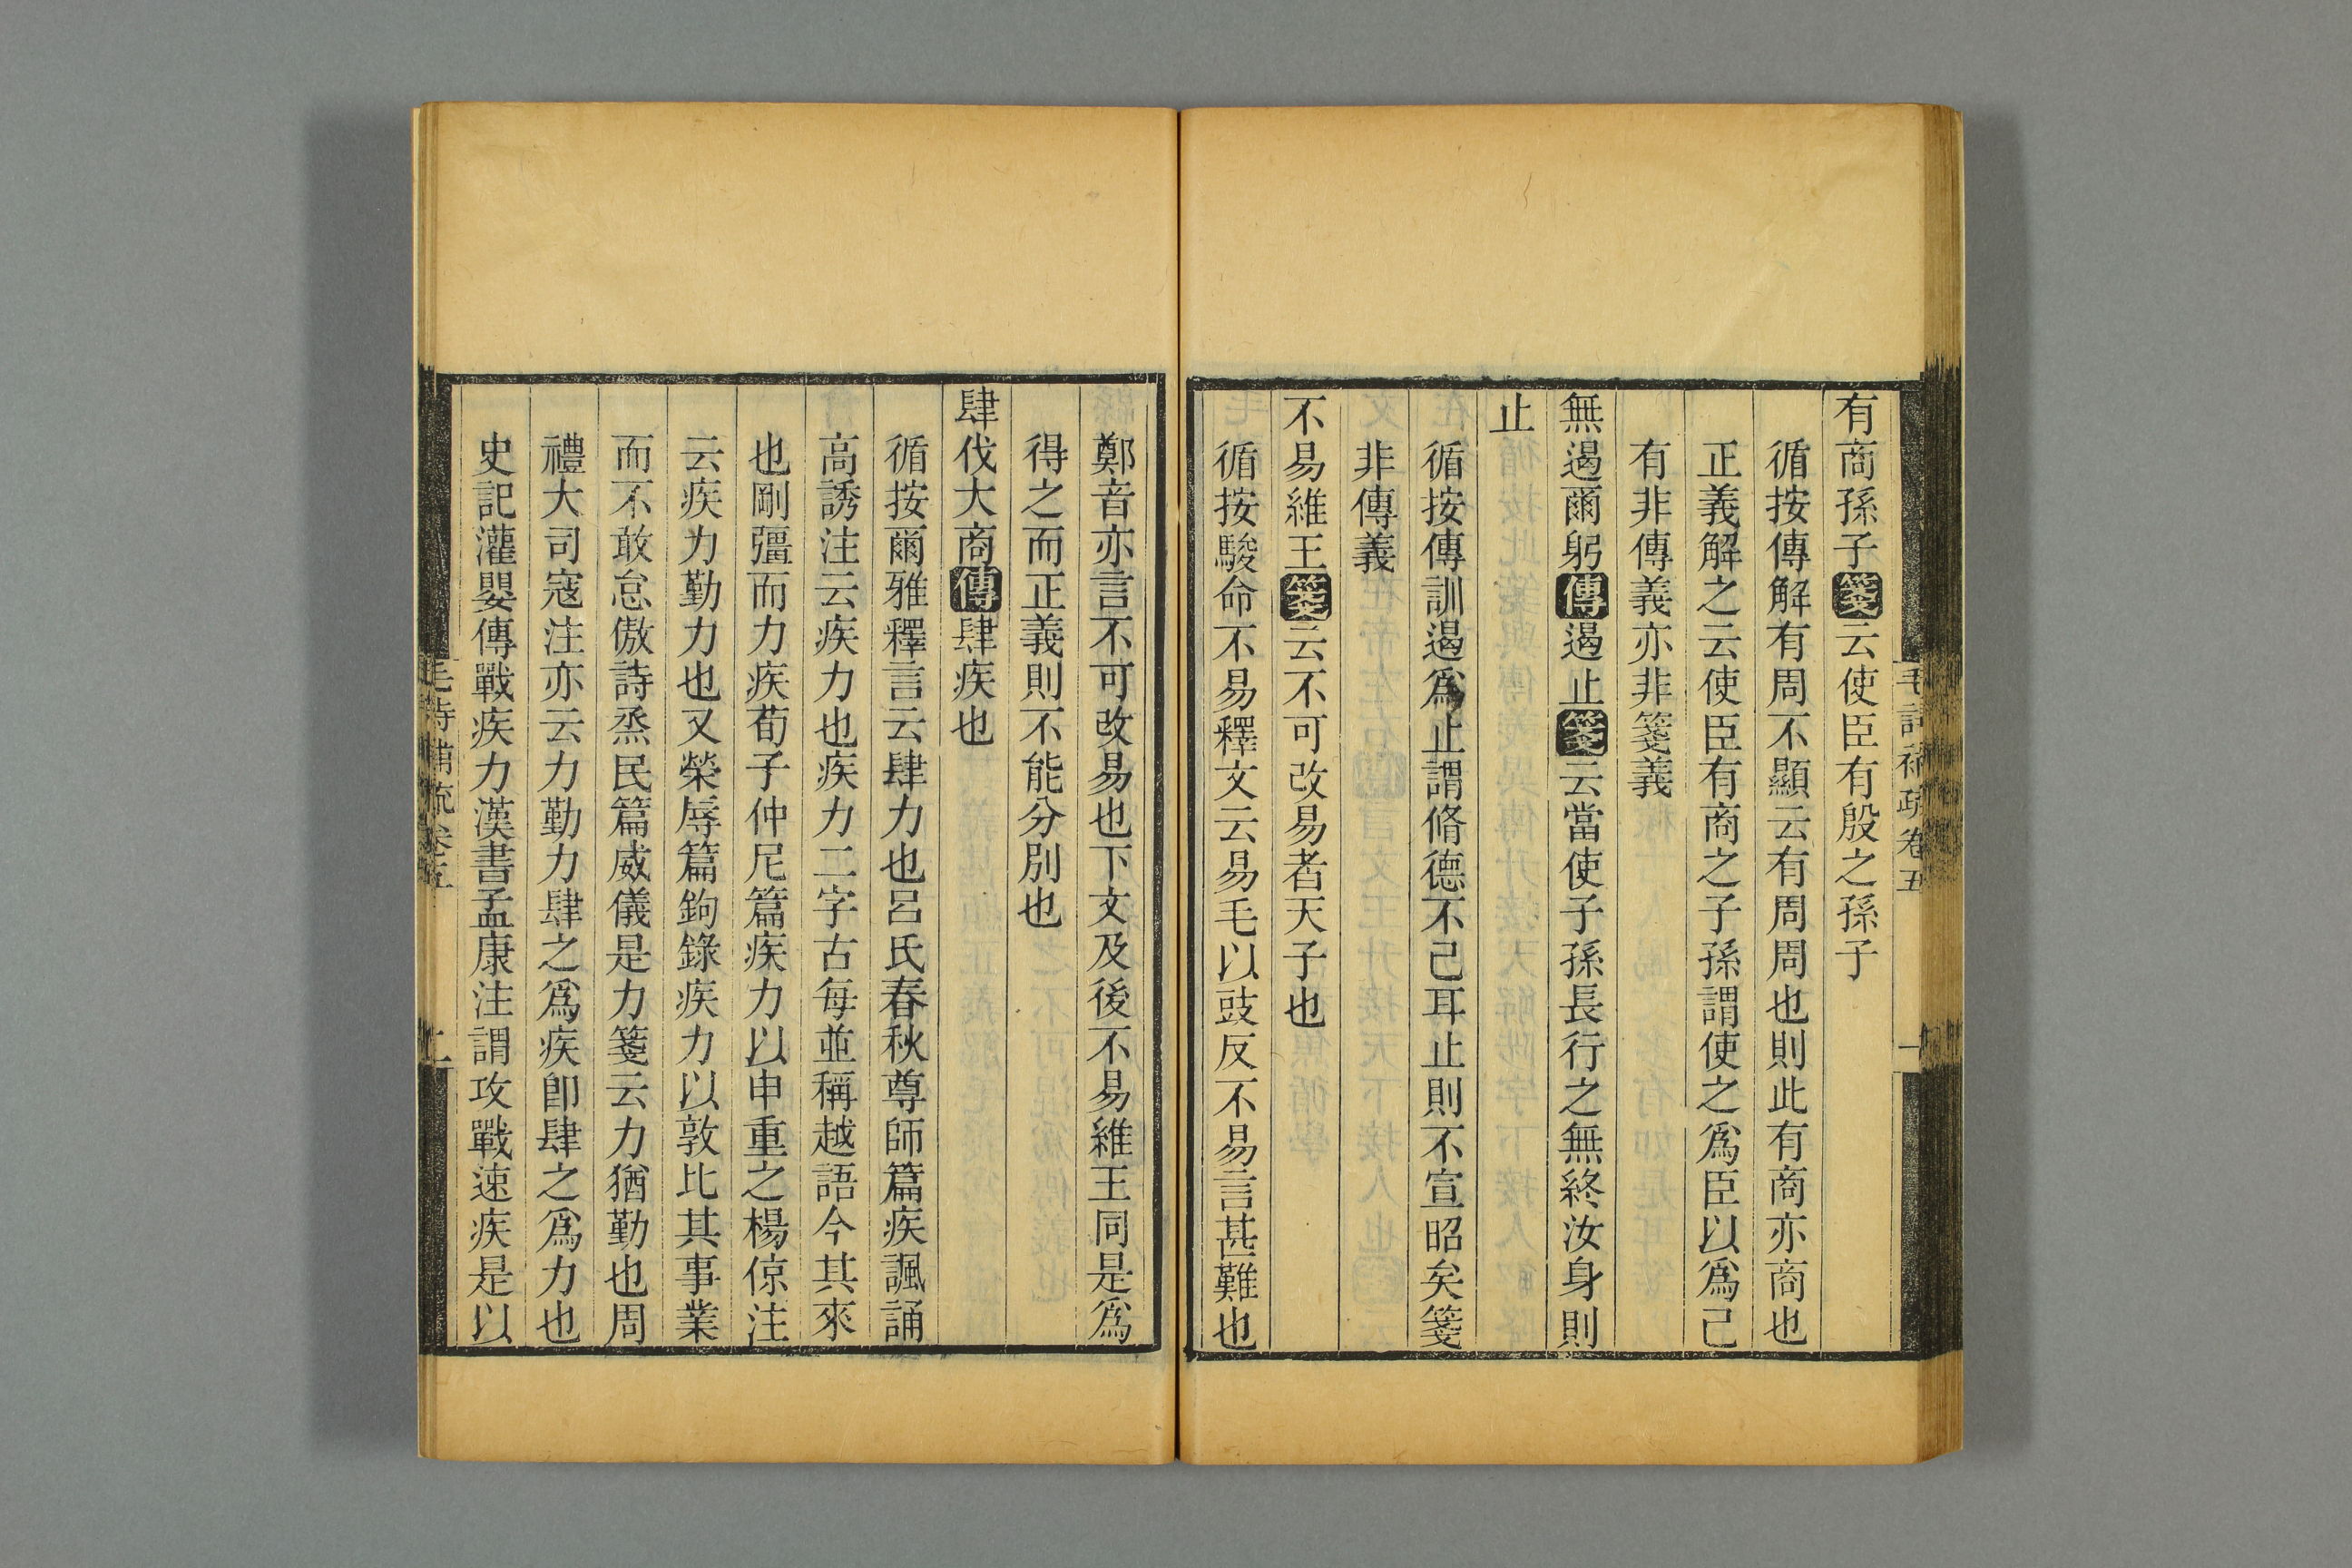 有商孫子箋云使臣有殷之孫子
循按傳解有周不顯云有周周也則此有商亦商也
正義解之云使臣有商之子孫謂使之爲臣以爲己
有非傳義亦非箋義
無遏爾躬傳遏止箋云當使子孫長行之無終汝身則
止
循按傳訓遏爲止謂脩德不己耳止則不宣昭矣箋
非傳義
不易維王箋云不可改易者天子也
循按駿命不易釋文云易毛以豉反不易言甚難也
毛詩補疏卷五
一
鄭音亦言不可改易也下文及後不易維王同是爲
得之而正義則不能分別也
肆伐大商傳肆疾也
循按爾雅釋言云肆力也呂氏春秋尊師篇疾諷誦
高誘注云疾力也疾力二字古每並稱越語今其來
也剛彊而力疾荀子仲尼篇疾力以申重之楊倞注
云疾力勤力也又榮辱篇鉤錄疾力以敦比其事業
而不敢怠傲詩烝民篇威儀是力箋云力猶勤也周
禮大司寇注亦云力勤力肆之爲疾卽肆之爲力也
史記灌嬰傳戰疾力漢書孟康注謂攻戰速疾是以
毛詩補疏卷五